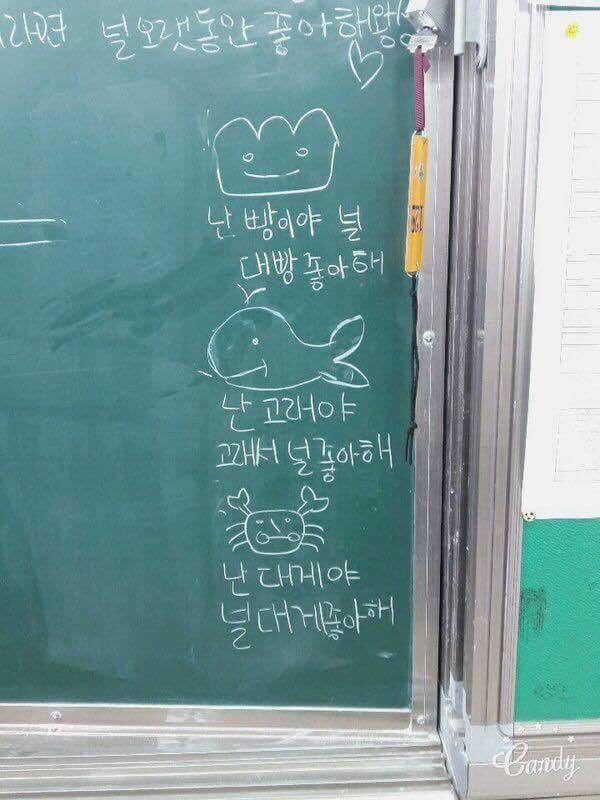 라면 널 오랫동안 좋아해왕
난 빵이야 널
대빵 좋아해
난 고래야
고래서 널 좋아해
난 대게야
널 대게 좋아해
Candy